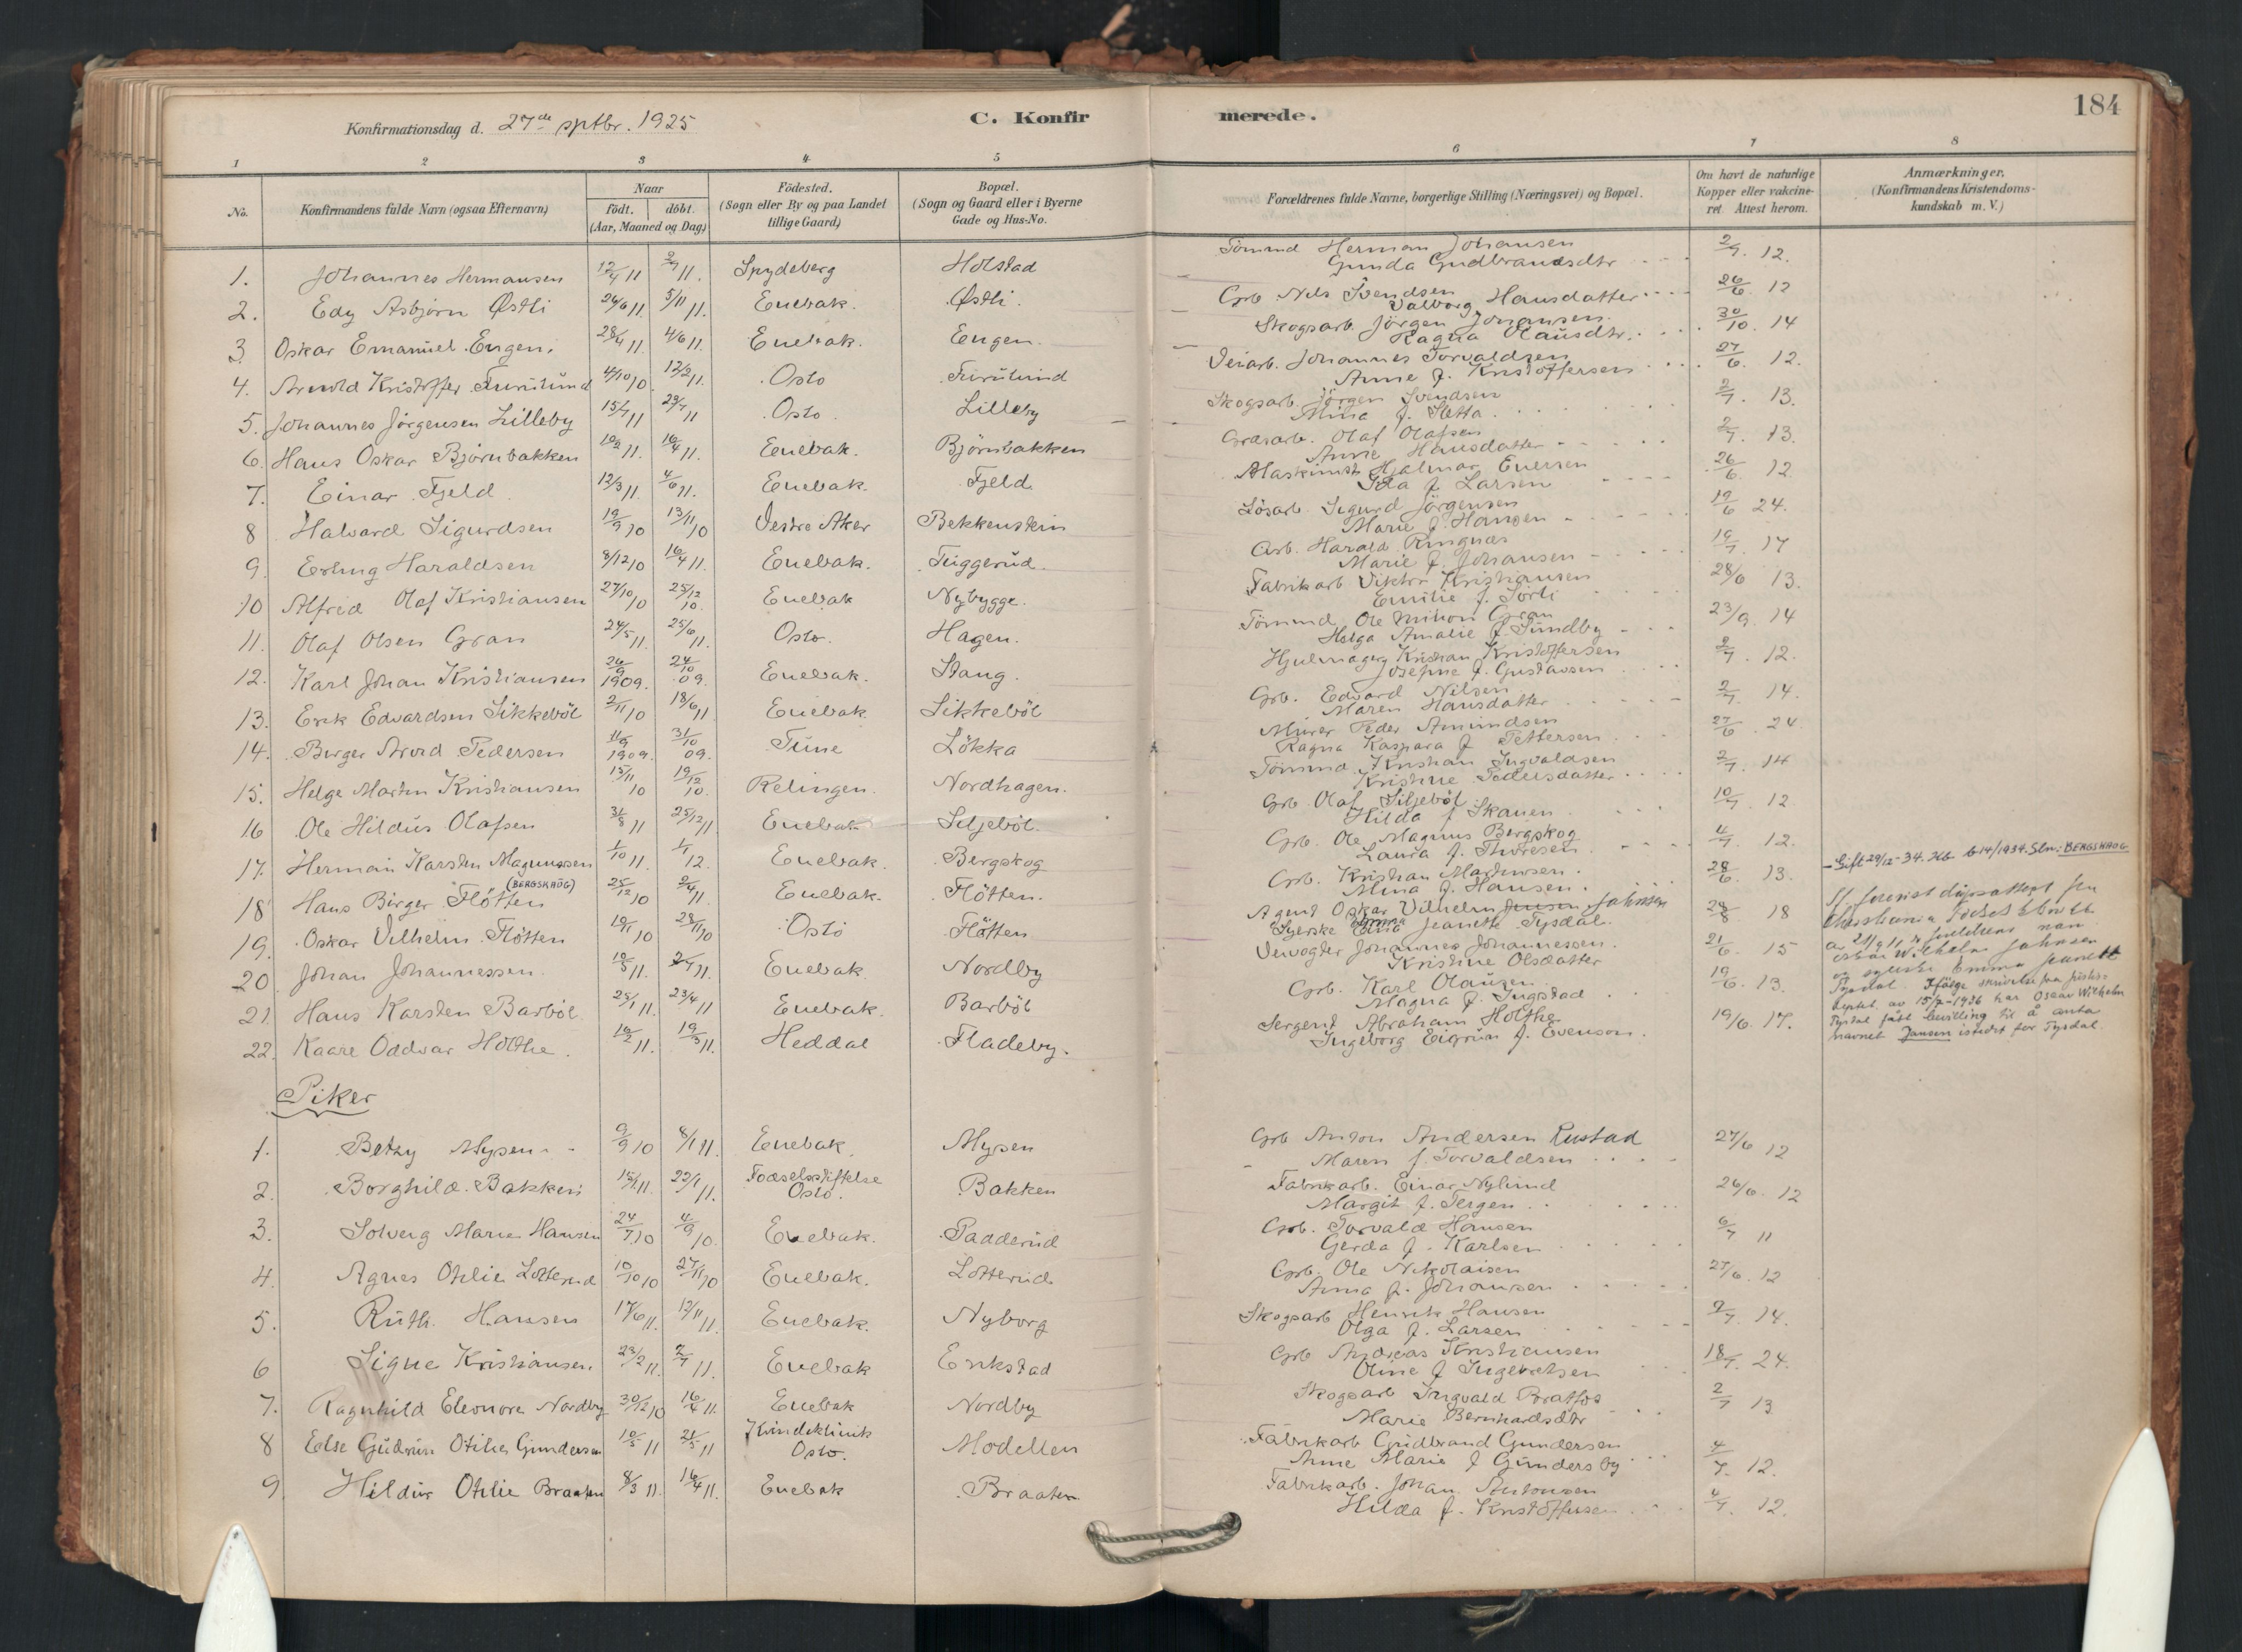 184
Konfirmationsdag d. 27de sptbr. 1925
C. Konfirmerede.
1 2 3 4 5 6 7 8
No.
Konfirmandens fulde Navn (ogsaa Efternavn)
Naar födt. döbt. (Aar, Maaned og Dag)
Födested. (Sogn eller By og paa Landet tillige Gaard)
Bopæl. (Sogn og Gaard eller i Byerne Gade og Hus-No.
Forældrenes fulde Navne, borgerlige Stilling (Næringsvei) og Bopæl.
Om havt de naturlige Kopper eller vakcineret. Attest herom.
Anmærkninger. (Konfirmandens Kristendomskundskab m. V.)
1. Johannes Hermansen 12/4 11 2/9 11. Spydeberg Holstad Tömmd Herman Johansen 2/7. 12.
Gunda Gudbrandsdtr
2. Edy Asbjørn Østli 26/6 11. 5/11 11. Enebak. Østli. Grb Nils Svendsen 26/6. 12
Valborg Hansdatter
3 Oskar Emanuel Engen. 28/4 11. 4/6 11. Enebak. Engen. Skogsarb. Jörgen Johansen. 30/10. 14
Ragna Olausdtr.
4. Arnold Kristoffer Furulund 4/10 10. 12/2 11. Oslo Furulund Veiarb. Johannes Torvaldsen 27/6. 12.
Anne f. Kristoffersen
5. Johannes Jörgensen Lilleby 15/4 11 23/7 11 Oslo. Lilleby Skogsarb. Jörgen Svendsen 2/7. 13.
Mina f. Sletta
6. Hans Oskar Bjørnbakken 10/2 11. 16/4 11. Enebak. Bjørnbakken Olaf Olafsen 2/7. 13.
Anne Hansdatter
7. Einar Fjeld 12/3 11. 4/6 11. Enebak. Fjeld Maskinist Hjalmar Evensen 26/6. 12
Ida f. Larsen
8 Halvard Sigurdsen 19/9 10 13/11 10 Vestre Aker Bekkenstein Lösarb. Sigurd Jörgensen 19/6 24.
Marie f. Hansen
9. Erling Haraldsen 8/12 10 16/4 11. Enebak. Triggerud. Arb. Harald Ringnæs 19/7. 17
Marie f. Johansen
10 Alfred Olaf Kristiansen 27/10 10 25/12 10. Enebak Nybygge. Fabrikarb Viktor Kristiansen 28/6 13.
Emilie f. Sörli
11. Olaf Olsen Gran 24/5 11. 25/6 11. Oslo. Hagen. Tömmd Ole Milion Gran 23/9. 14
Helga Amalie f. Sundby
12. Karl Johan Kristiansen 26/9 1909. 24/10 09. Enebak. Stang. Hjulmager Kristian Kristoffersen 2/7. 12.
Josefine f. Gustavsen
13. Erik Edvardsen Sikkeböl 2/11 10 18/6 11 Enebak Sikkeböl Grb. Edvard Nilsen 2/7. 14.
Maren Hansdatter
14. Birger Arvid Pedersen 11/9 1909. 31/10 09. Tune Lökka Murer Peder Amundsen 27/6. 24.
Ragna Kaspara f Pettersen
15. Helge Martin Kristiansen 15/11 10 19/12 10. Relingen. Nordhagen. Tömmd. Kristian Ingvaldsen 2/7. 14
Kristine Pedersdatter
16 Ole Hildus Olafsen 31/8 11 25/12 11. Enebak Siljeböl. Grb Olaf Siljeböl 10/7. 12
Hilda f Skauen
17. Herman Karsten Magnussen 1/10 11. 1/1 12. Enebak. Bergskog Grb. Ole Magnus Bergskog 4/7. 12. Gift 29/12-34. Kb b14/1934. Sln: BERGSKAUG
(BERGSKAUG) Laura f. Thoresen
18 Hans Birger Flötten 25/12 10 2/4 11. Enebak. Flötten. Grb. Kristian Martinsen 28/6. 13.
Mina f. Hansen.
19. Oskar Vilhelm Flötten 19/11 10 28/11 10 Oslo Flötten Agent Oskar Vilhelm Jensen Johnsen 28/8. 18
Syerske Emma Jeanette Tysdal.
20 Johan Johannessen. 10/3 11. 2/7 11. Enebak Nordby Veivogter Johannes Johannessen. 21/6. 15
Kristine Olsdatter
21. Hans Karsten Barböl 25/1 11. 23/4 11 Enebak. Barböl Grb. Karl Olausen 19/6. 13.
Magna f. Ingstad
22. Kaare Oddvar Holthe. 16/2 11. 19/3 11. Heddal Fladeby. Sergent Abraham Holthe 19/6. 17.
Ingeborg Eigrun f. Evenson.
Kristiania
Wilhelm Johnsen
Emma
Tysdal. Ifölge skrivelse fra justis-
deptet av 15/2-1936 har Oscar Wilhelm
Tysdal fått bevilling til å anta
navnet Jansen istedet for Tysdal.
Piker
1. Betzy Mysen 9/9 10 8/1 11. Enebak. Mysen Grb Anton Andersen Rustad 27/6 12
Maren f. Torvaldsen
2. Borghild Bakken 15/1 11. 22/1 11. Födselsstiftelse Oslo. Bakken Fabrikarb. Einar Nylund 26/6. 12
Margit f. Tergen
3. Solveig Marie Hansen 24/7 10 4/9 10. Enebak. Padderud Grb. Torvald Hansen 6/7 11
Gerda f. Karlsen
4. Agnes Otilie Lotterud 10/10 10 27/11 10 Enebak. Lotterud Grb. Ole Nikolaisen 27/6. 12
Anna f. Johansen
5. Ruth Hansen 17/6 11. 12/11 11. Enebak. Nyborg Skogsarb Henrik Hansen 2/7. 14.
Olga f. Larsen
6 Signe Kristiansen. 23/2 11. 2/7 11. Enebak Erikstad Grb Andreas Kristiansen 18/7. 24.
Oline f Ingebretsen
7. Ragnhild Eleonore Nordby 30/12 10 16/4 11. Enebak Nordby Skogsarb Ingvald Bratfos 2/7 13
Marie Bernhardsdtr
8 Else Gudrun Otilie Gundersen 10/5 11 21/5 11 Kvindeklinik Oslo. Modellen Fabrikarb Gudbrand Gundersen 4/7. 12.
Anne Marie f Gundersby
9. Hildur Otilie Braaten 8/3 11. 16/4 11. Enebak Braaten Fabrikarb. Johan Antonsen 4/7. 12.
Hilda f. Kristoffersen